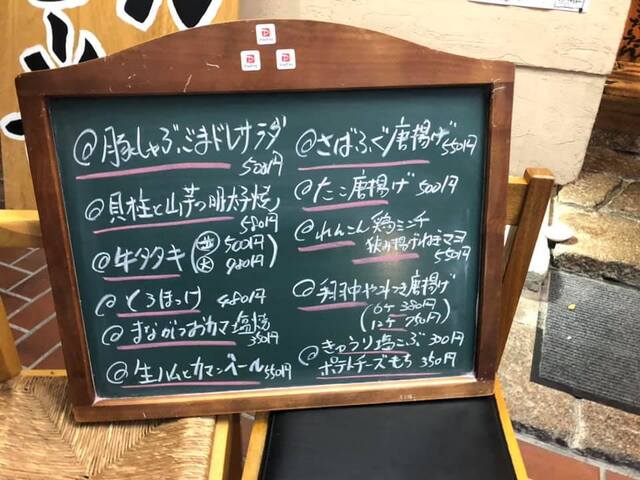 @豚しゃぶごまドレサラダ
500円
@貝柱と山芋の明太子焼
580円
@牛タタキ
小 500円
大 980円
@とろほっけ 480円
@まながつおカマ塩焼
350円
@生ハムとカマンベール 550円
@さばふぐ唐揚げ 550円
@たこ唐揚げ 500円
@れんこん鶏ミンチ
挟み揚げねぎマヨ
550円
@手羽中やみつき唐揚げ
6ケ 380円
12ケ 750円
@きゅうり塩こぶ 300円
ポテトチーズもち 350円